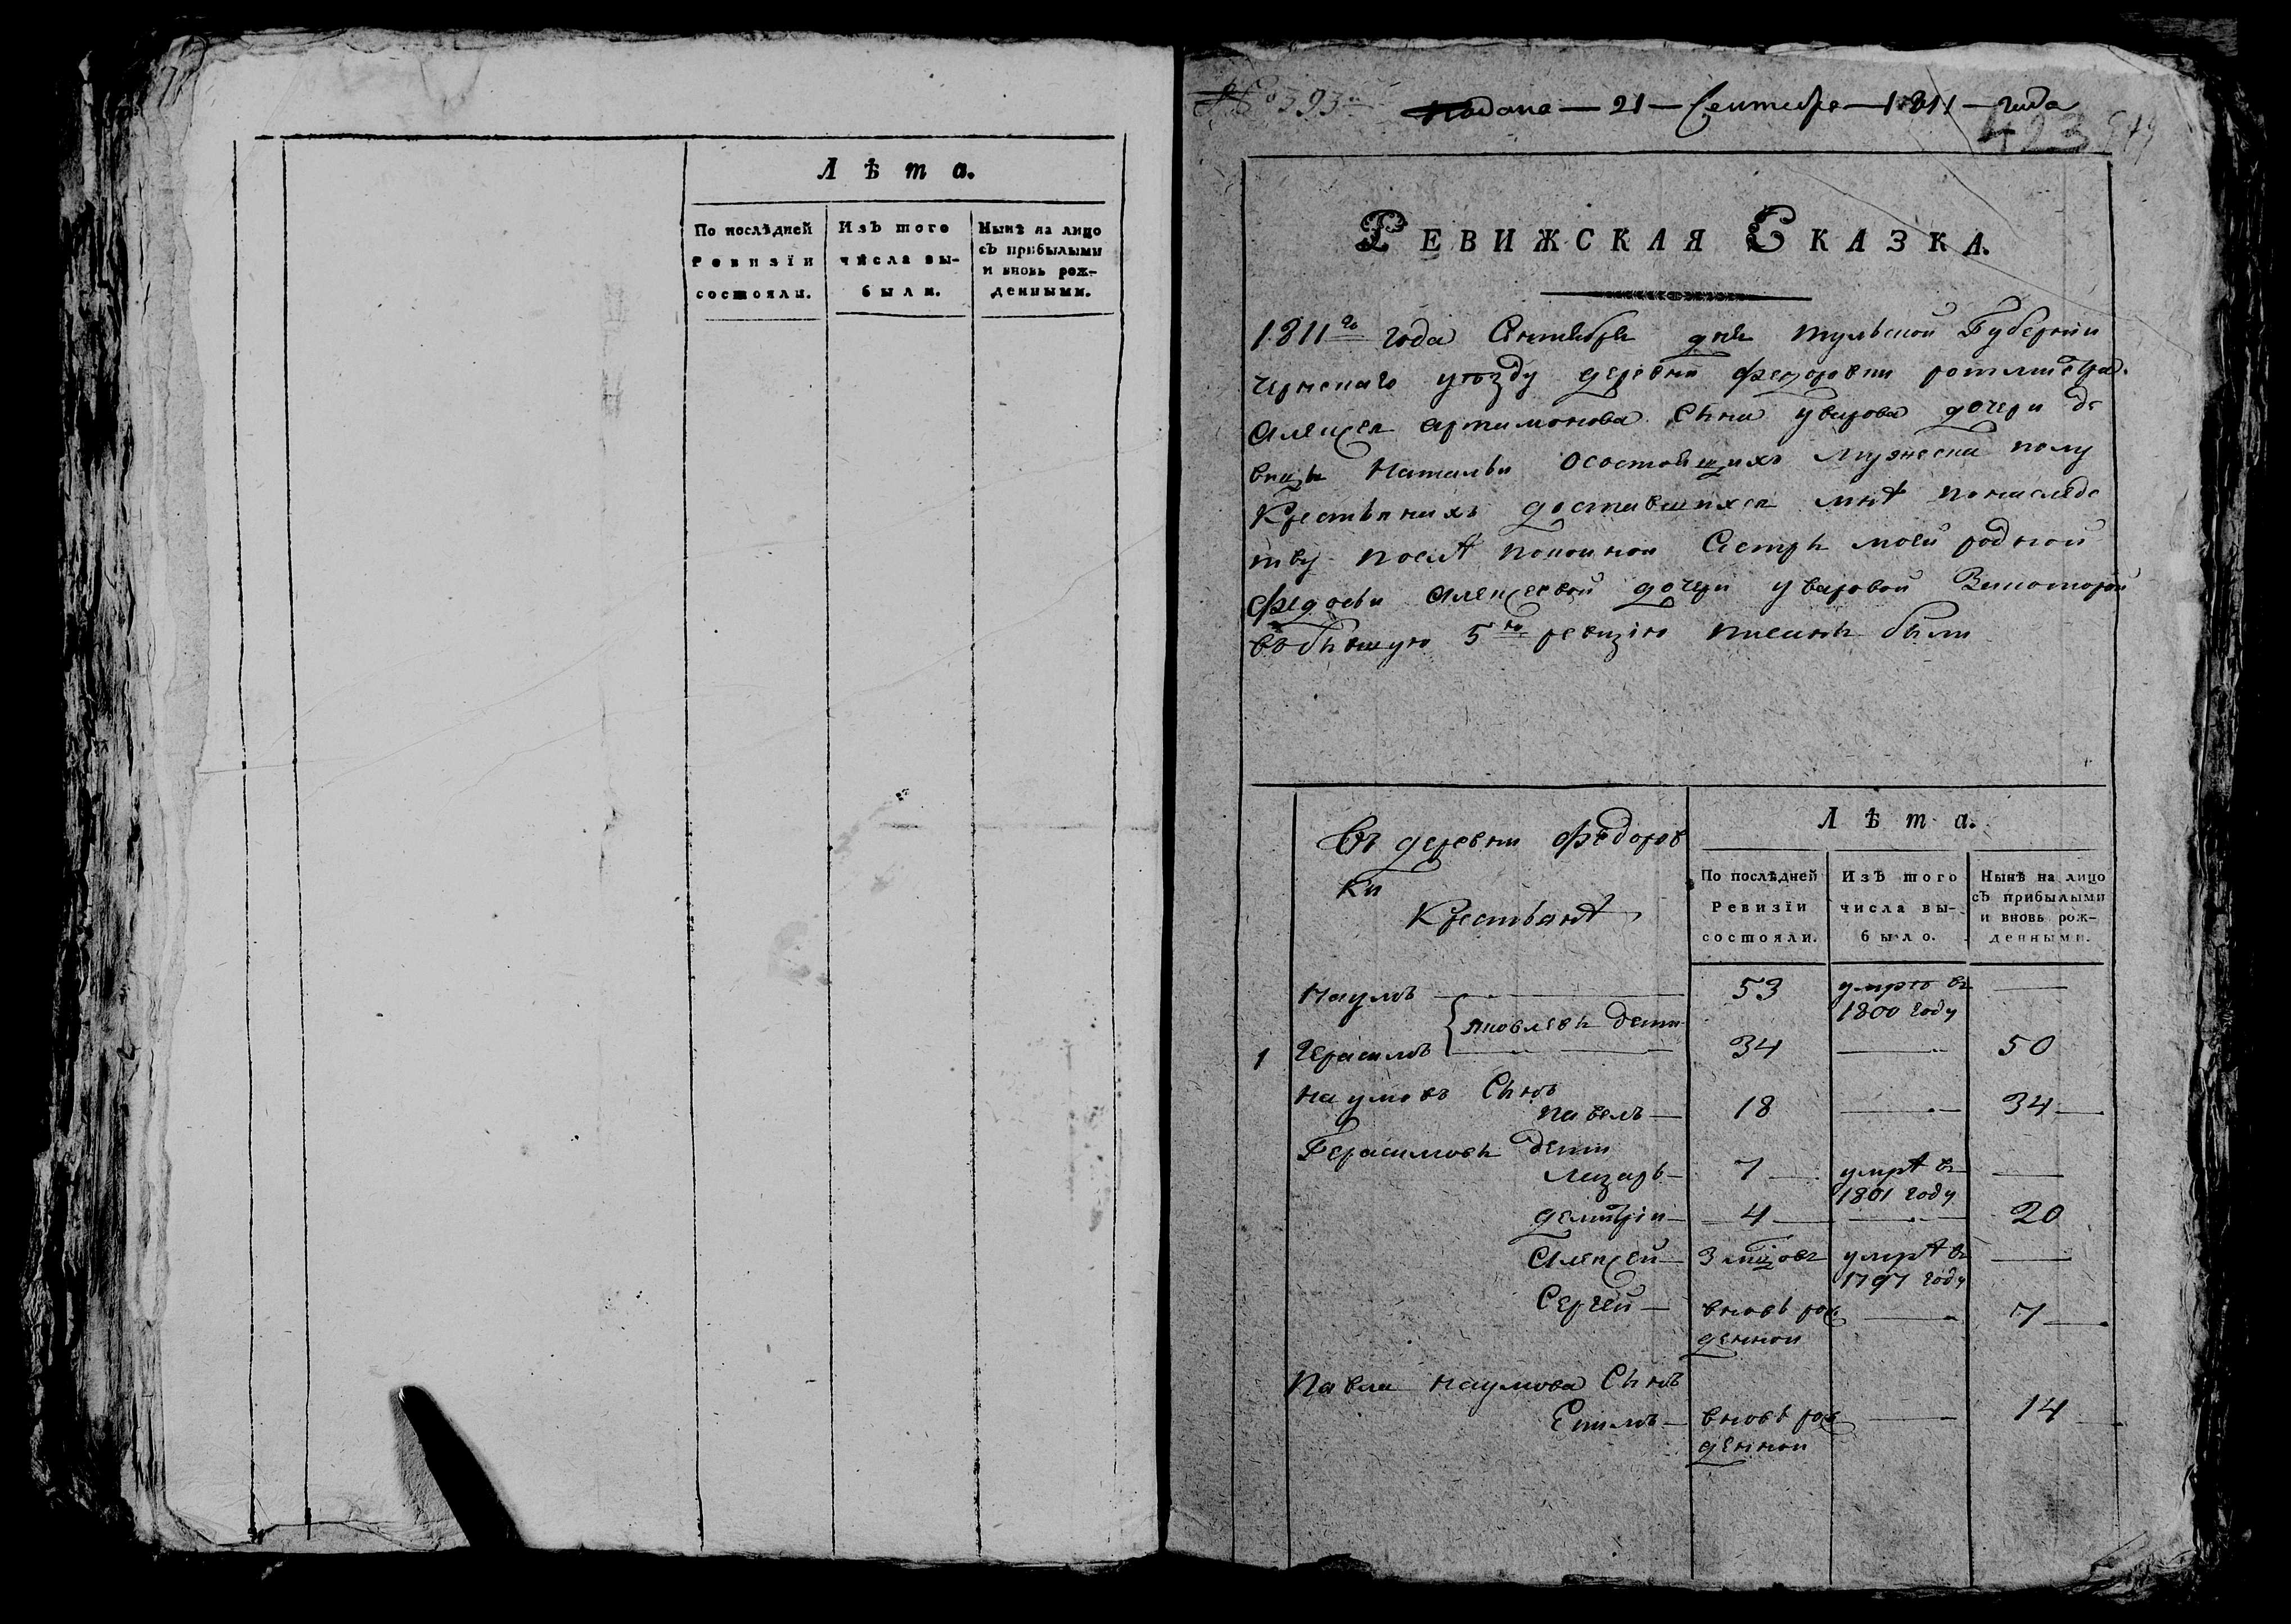 Лѣта.
По послѣдней Ревизїи состояли.
Изъ того числа выбыли.
Нынѣ на лицо съ прибылыми и вновь рожденными.
№ 393
Подана — 21 — Сентебря — 1811 — года
423
РЕВИЖСКАЯ СКАЗКА.
1811го года Сентебря дня тульской Губернии
чернскаго уѣзду деревни федоровки ротмистра
Алексея артамонова сына уварова дочери де
вицы Натальи о состоящихъ мужеска полу
крестьянихъ доставшихся мнѣ по наследс
тву послѣ покоиной Сестры моей родной
федосьи алексеевой дочери уваровой
в бывшую 5ю ревизию писаны были
Въ деревни федоров
ки
Крестьянѣ
Лѣта.
По послѣдней Ревизїи состояли.
Изъ того числа выбыло.
Нынѣ на лицо съ прибылыми и вновь рожденными.
Наумъ — 53 умре въ 1800 году —
яковлевы дети
1 Герасимъ — 34 — 50
наумовъ Сынъ
павелъ — 18 — 34
Герасимовы дети
лазарь — 7 умрѣ въ 1801 году —
демитрiи — 4 — 20
Алексей — 3 мцовъ умрѣ въ 1797 году —
Сергей — вновь рож денной — 7
Павла наумова Сынъ
Ефимъ — вновь рож денной — 14